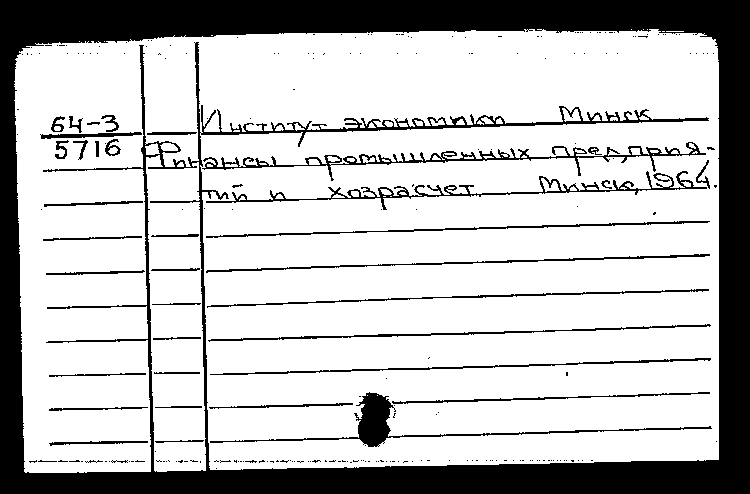 64-3 Институт экономики Минск
5716 Финансы промышленных предприя-
тий и хозрасчет. Минск, 1964.